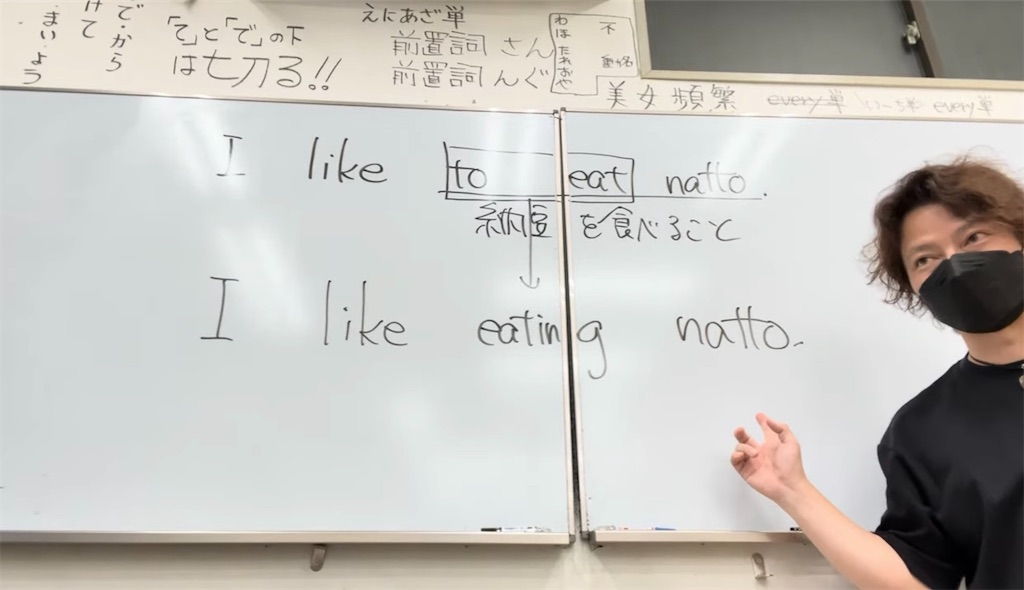 で・から
けて
まい・よう
「て」と「で」の下
は七刀る!!
えにあざ単
前置詞 さん
前置詞 んぐ
わは たれおや
不
動名
美女頻繁 every単 every単
I like to eat natto.
納豆を食べること
I like eating natto.